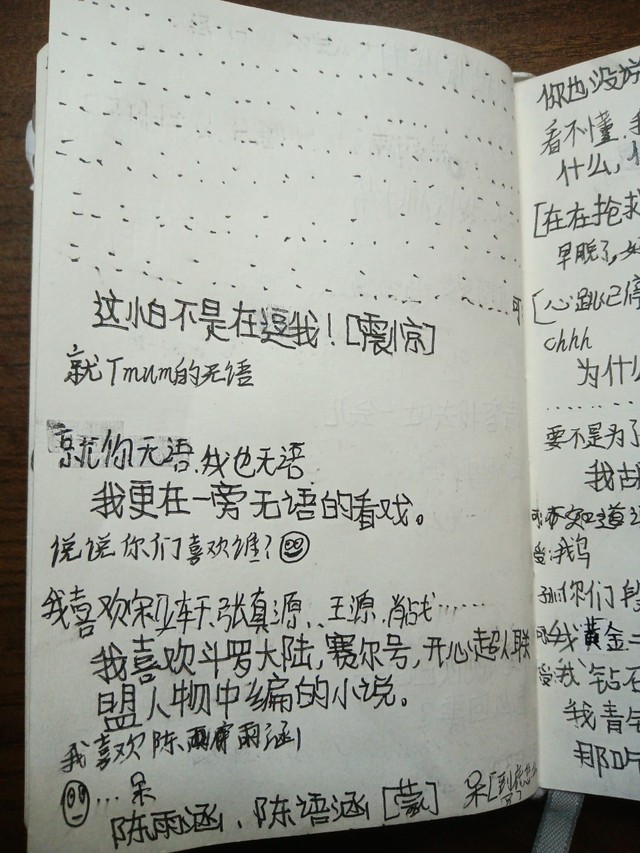 这怕不是在逗我！[震惊]
就Tmum的无语
就你无语.我也无语
我更在一旁无语的看戏。
说说你们喜欢谁？
我喜欢宋亚轩、张真源、王源、肖战……
我喜欢斗罗大陆,赛尔号,开心超人联
盟人物中编的小说。
我喜欢陈雨涵
…呆
陈雨涵、陈语涵[蒙]
呆
你也没
看不懂.
什么,
[在在抢救
早脱了,
[心跳已停
chhh
为什么
要不是为了
我
知道
我鸟
你们段
我黄金二
我钻石
我青铜
那